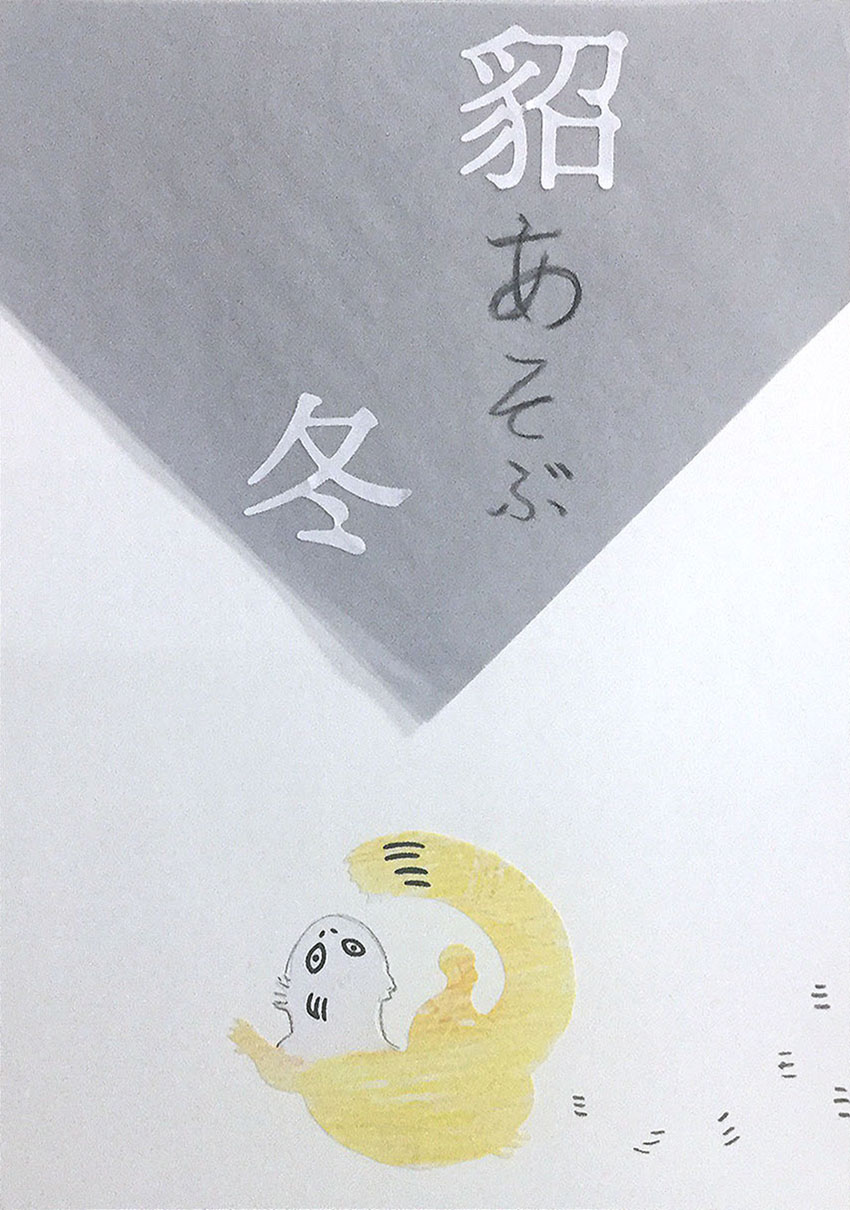 貂あそぶ
冬